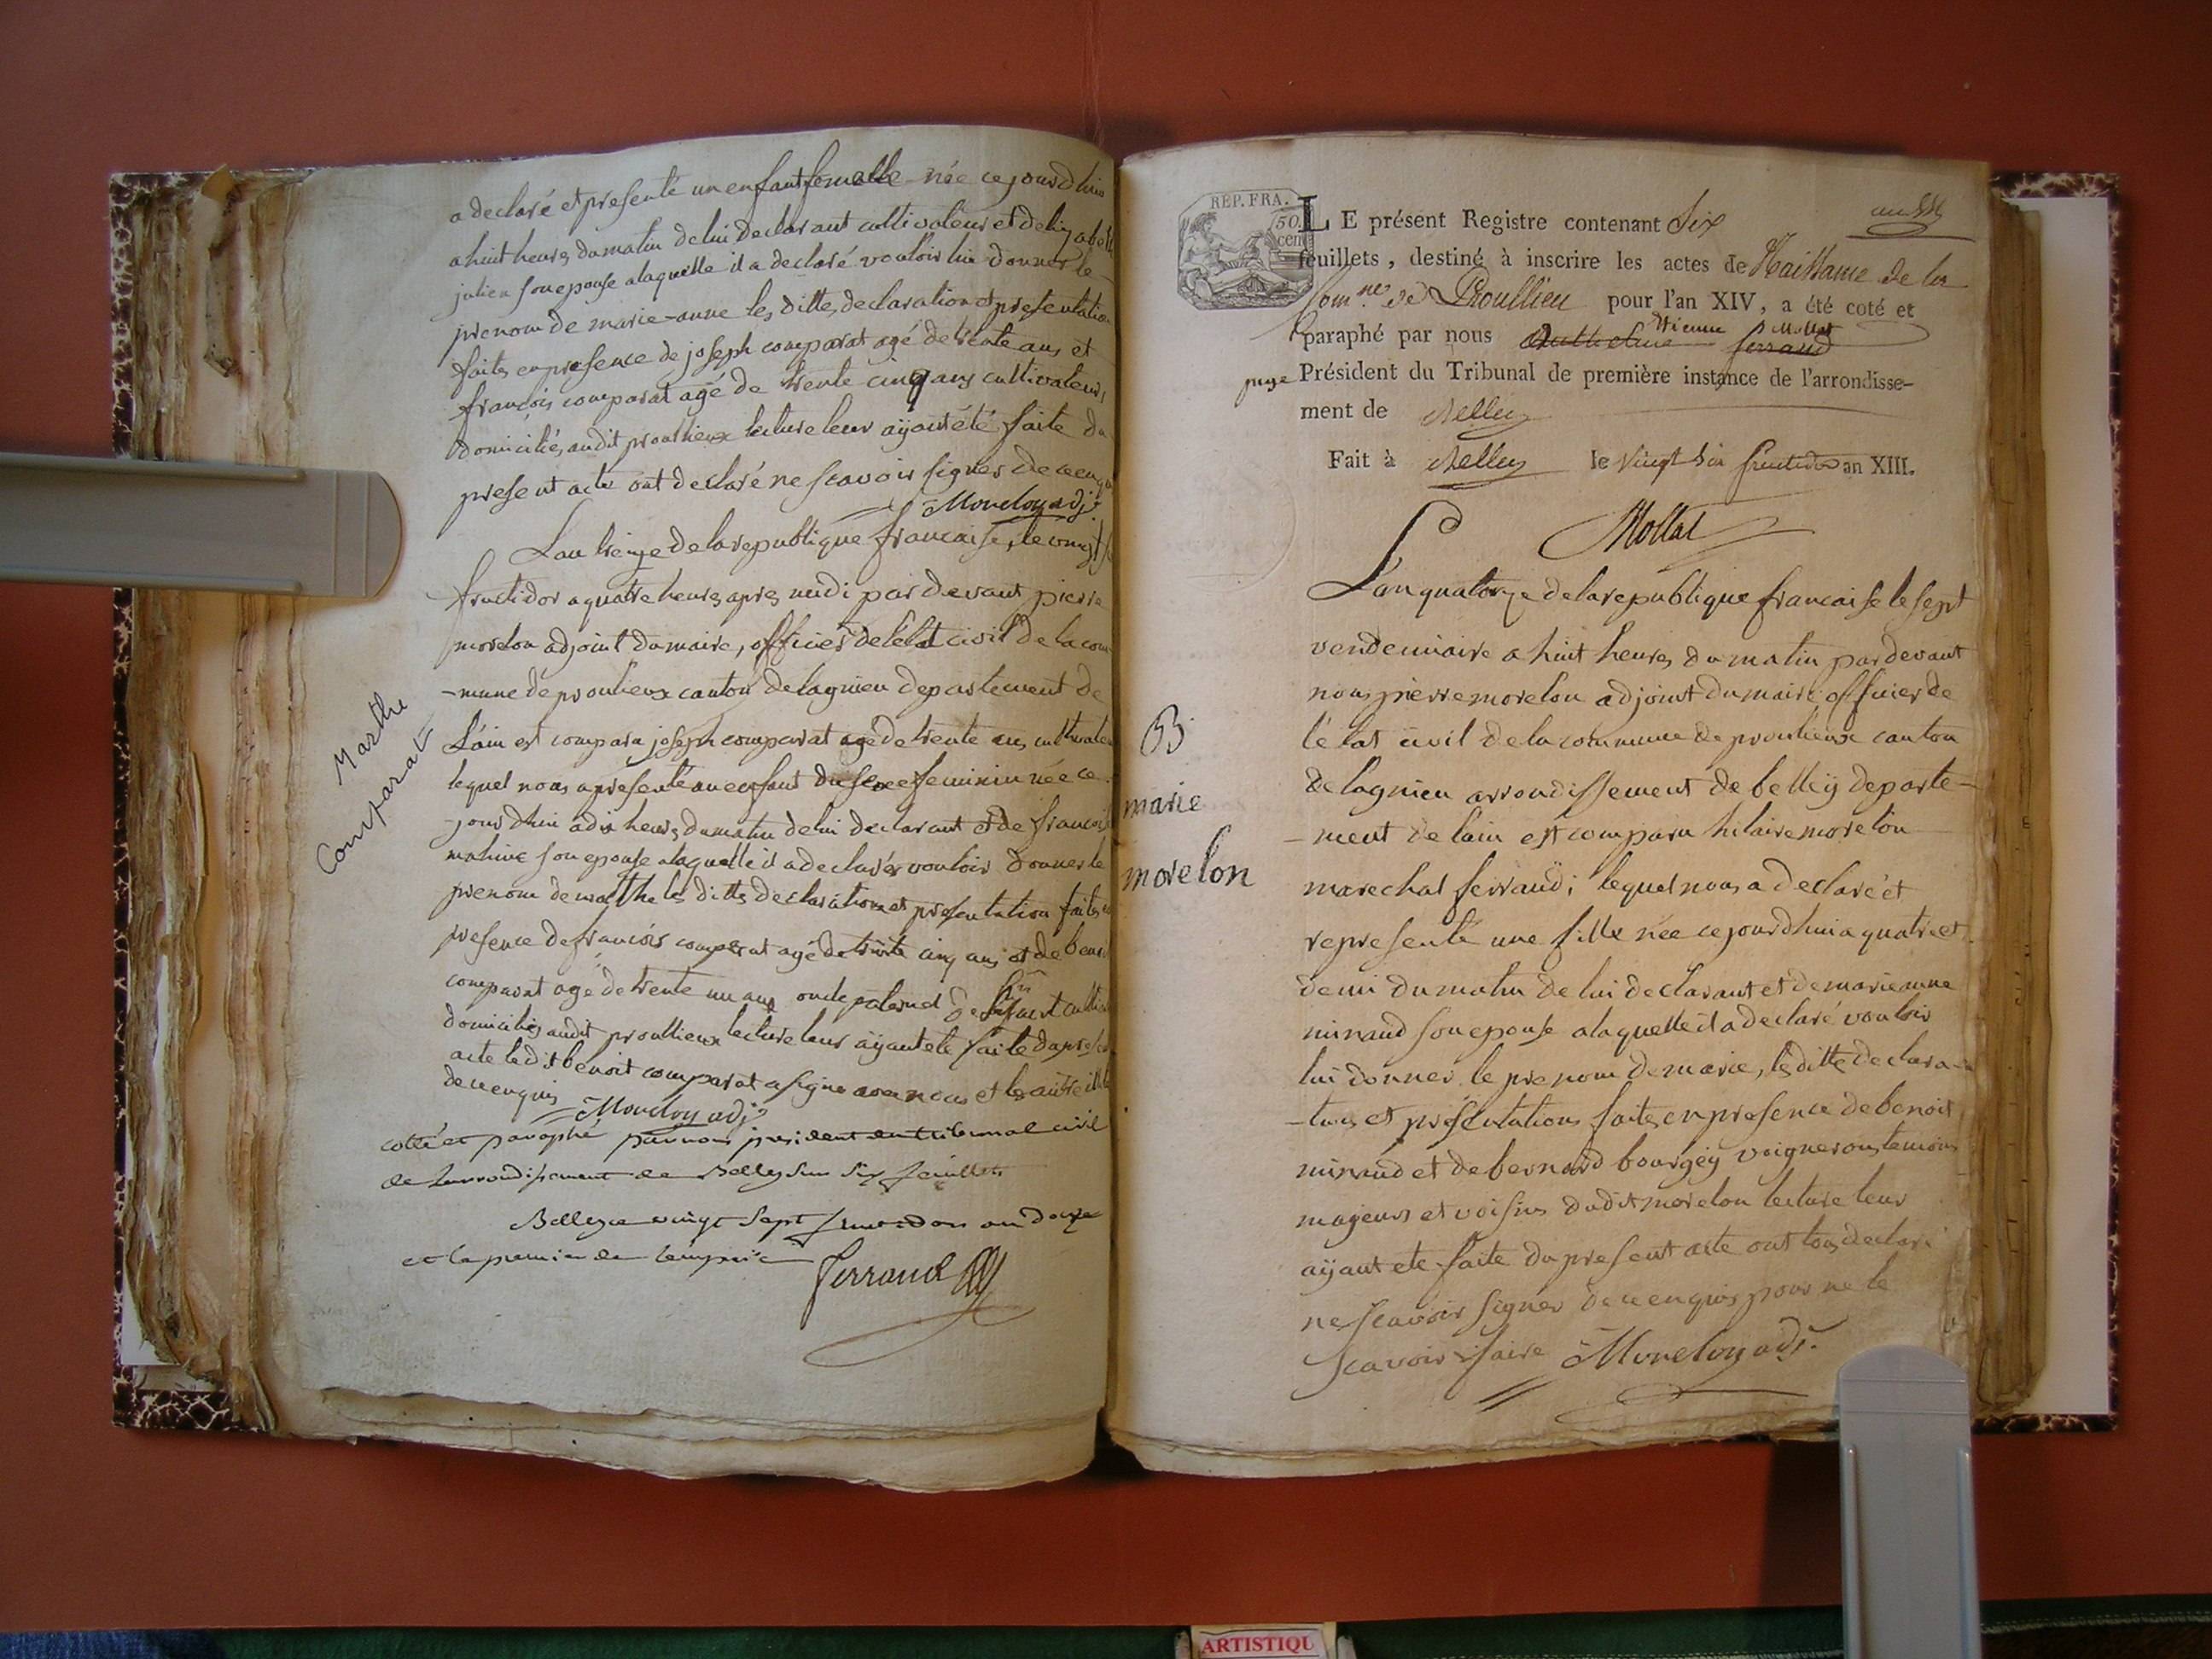 a declaré et presenté un enfant femelle née ce jourdhui
a huit heures du matin de lui declarant cultivateur et
julien son epouse a laquelle il a declaré vouloir lui donner le
prenom de marie-anne les dittes declaration et presentation
faites en presence de joseph comparat agé de trente ans et
françois comparat agé de trente cinq ans cultivateurs
domiciliés audit proulieux lecture leur aÿant été faite du
present acte ont declaré ne scavoir signer de ce enquis
Morelon adj.t
L'an treize de la republique francaise, le vingt
fructidor a quatre heures apres midi par devant pierre
morelon adjoint du maire, officier de l'état civil de la com
-mune de proulieux canton de lagnieu departement de
L'ain est comparu joseph comparat agé de trente ans cultivateur
lequel nous a presenté un enfant du sexe feminin née ce
-jourdhui a dix heures du matin de lui declarant et de francois
son epouse a laquelle il a declaré vouloir donner le
prenom de marthe les dittes declaration et presentation faites en
presence de francois comparat agé de trente cinq ans et de benoit
comparat agé de trente un ans oncle paternel de
domiciliés audit proullieux lecture leur aÿant eté faite du present
acte le dit benoit comparat a signé avec nous et les autres
de ce enquis
Morelon adj.t
cotté et paraphé par nous president du tribunal civil
de l'arrondissement de Belley sur six feuillets
Belley ce vingt sept fructidor an douze
et le premier de l'empire
Ferrand
Marthe
Comparat
REP. FRA.
50
cen
LE présent Registre contenant Six
feuillets, destiné à inscrire les actes de Naissance de la
Com.ne de Proullieu pour l'an XIV, a été coté et
paraphé par nous Anthelme Ferrand Etienne Mollat
juge Président du Tribunal de première instance de l'arrondisse-
ment de Belley
Fait à Belley le vingt six fructidor an XIII.
Mollat
L'an quatorze de la republique francaise le sept
vendemiaire a huit heures du matin par devant
nous pierre morelon adjoint du maire officier de
l'état civil de la commune de proulieux canton
de lagnieu arrondissement de belleÿ departe-
-ment de lain est comparu hilaire morelon
marechal ferrand; lequel nous a declaré et
representé une fille née ce jourdhui a quatre et
demi du matin de lui declarant et de marie anne
minand son epouse a laquelle il a declaré vouloir
lui donner le prenom de marie, les ditte declara-
-tions et présentations faites en presence de benoit
minand et de bernard bourgeÿ vignerons temoins
majeurs et voisins dudit morelon lecture leur
aÿant eté faite du present acte ont tous declaré
ne scavoir signer de ce enquis pour ne le
scavoir faire Morelon adj.t
B
marie
morelon
ARTISTIQU